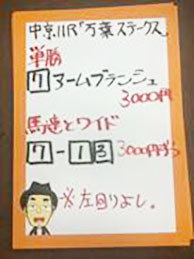 中京11R「万葉ステークス」
単勝
7 ヌームブランシュ
3000円
馬連とワイド
7-13 3000円ずつ
※左回りよし。